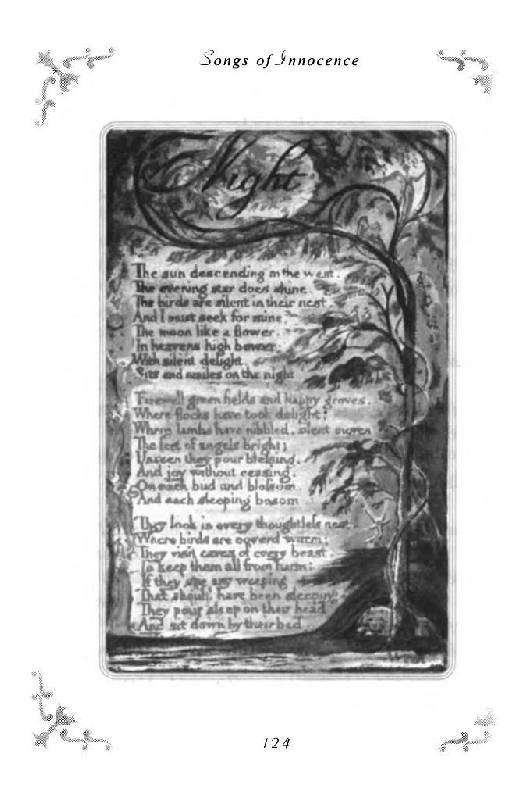 Songs of Innocence
Night
The sun descending in the west.
The evening star does shine.
The birds are silent in their nest
And I must seek for mine.
The moon like a flower.
In heavens high bower;
With silent delight.
Sits and smiles on the night
Farewell green fields and happy groves,
Where flocks have took delight;
Where lambs have nibbled, silent moves
The feet of angels bright;
Unseen they pour blessing.
And joy without ceasing.
On each bud and blossom.
And each sleeping bosom
They look in every thoughtless nest
Where birds are coverd warm;
They visit caves of every beast.
To keep them all from harm;
If they see any weeping
That should have been sleeping
They pour sleep on their head
And sit down by their bed
124